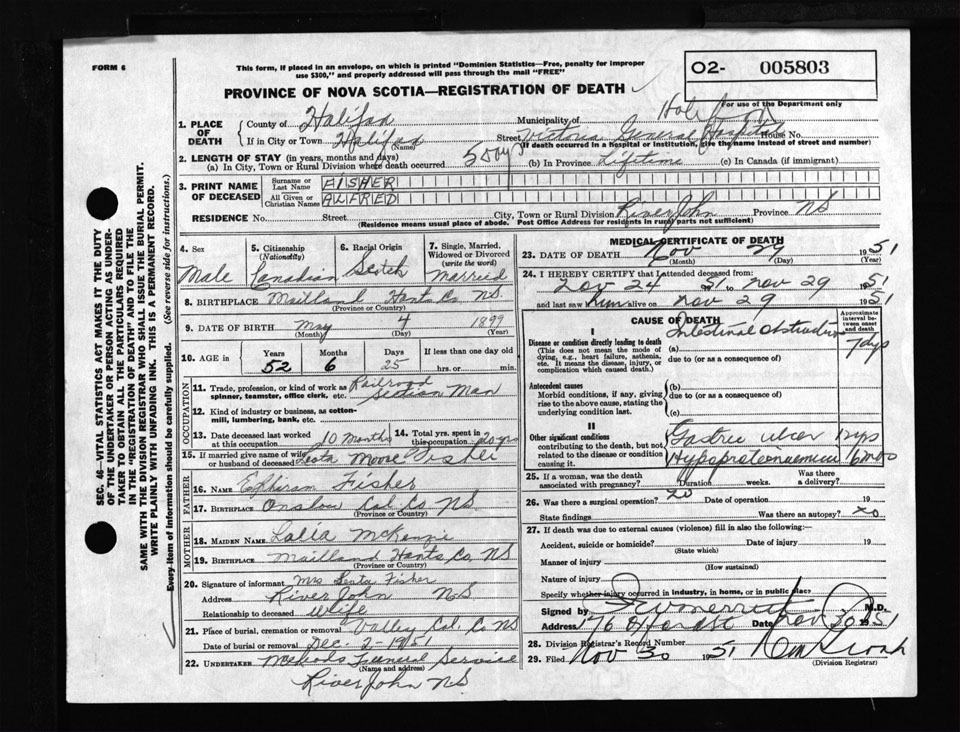 FORM 6
This form, if placed in an envelope, on which is printed "Dominion Statistics—Free, penalty for improper
use $300," and properly addressed will pass through the mail "FREE"
PROVINCE OF NOVA SCOTIA—REGISTRATION OF DEATH
O2- 005803
For use of the Department only
1. PLACE OF DEATH
County of Halifax Municipality of
If in City or Town Halifax (Name) Street Victoria General Hospital House No.
(If death occurred in a hospital or institution, give the name instead of street and number)
2. LENGTH OF STAY (in years, months and days)
(a) In City, Town or Rural Division where death occurred 5 days (b) In Province Lifetime (c) In Canada (if immigrant)
3. PRINT NAME OF DECEASED
Surname or Last Name FISHER
All Given or Christian Names ALFRED
RESIDENCE House No. Street City, Town or Rural Division River John Province NS
(Residence means usual place of abode. Post Office Address for residents in rural parts not sufficient)
4. Sex Male
5. Citizenship (Nationality) Canadian
6. Racial Origin Scotch
7. Single, Married, Widowed or Divorced (write the word) Married
8. BIRTHPLACE Mailland Hants Co. NS.
(Province or Country)
9. DATE OF BIRTH May 4 1899
(Month) (Day) (Year)
10. AGE in Years 52 Months 6 Days 25 If less than one day old hrs. or min.
OCCUPATION
11. Trade, profession, or kind of work as spinner, teamster, office clerk, etc. Railroad Section Man
12. Kind of industry or business, as cotton-mill, lumbering, bank, etc.
13. Date deceased last worked at this occupation 10 Months
14. Total yrs. spent in this occupation 20 yrs
15. If married give name of wife or husband of deceased Moore Fisher
FATHER
16. NAME Ephiram Fisher
17. BIRTHPLACE Onslow Col. Co NS
(Province or Country)
MOTHER
18. MAIDEN NAME Lalia McKenzie
19. BIRTHPLACE Mailland Hants Co. NS
(Province or Country)
20. Signature of informant Mrs Fisher
Address River John NS
Relationship to deceased Wife
21. Place of burial, cremation or removal Valley Col. Co NS
Date of burial or removal Dec. 2-1951
22. UNDERTAKER Funeral Service
(Name and address)
River John NS
MEDICAL CERTIFICATE OF DEATH
23. DATE OF DEATH Nov 29 1951
(Month) (Day) (Year)
24. I HEREBY CERTIFY that I attended deceased from:
Nov 24 1951 to Nov 29 1951
and last saw him alive on Nov 29 1951
CAUSE OF DEATH
Approximate interval between onset and death
I
Disease or condition directly leading to death
(This does not mean the mode of dying, e.g., heart failure, asthenia, etc. It means the disease, injury, or complication which caused death.)
(a) Intestinal obstruction 7 dys
due to (or as a consequence of)
Antecedent causes
Morbid conditions, if any, giving rise to the above cause, stating the underlying condition last.
(b)
due to (or as a consequence of)
(c)
II
Other significant conditions
contributing to the death, but not related to the disease or condition causing it.
Gastric ulcer 12 yrs
Hypoproteinaemia 6 mos
25. If a woman, was the death associated with pregnancy? Duration weeks. Was there a delivery?
26. Was there a surgical operation? no Date of operation 19
State findings Was there an autopsy? no
27. If death was due to external causes (violence) fill in also the following:—
Accident, suicide or homicide? Date of injury 19
(State which)
Manner of injury
(How sustained)
Nature of injury
Specify whether injury occurred in industry, in home, or in public place
Signed by M.D.
Address 176 Date Nov 30 1951
28. Division Registrar's Record Number
29. Filed Nov 30 1951
(Division Registrar)
SEC. 46—VITAL STATISTICS ACT MAKES IT THE DUTY
OF THE UNDERTAKER OR PERSON ACTING AS UNDERTAKER
TO OBTAIN ALL THE PARTICULARS REQUIRED
IN THE "REGISTRATION OF DEATH" AND TO FILE THE
SAME WITH THE DIVISION REGISTRAR WHO SHALL ISSUE THE BURIAL PERMIT.
WRITE PLAINLY WITH UNFADING INK. THIS IS A PERMANENT RECORD.
Every item of information should be carefully supplied. (See reverse side for instructions.)